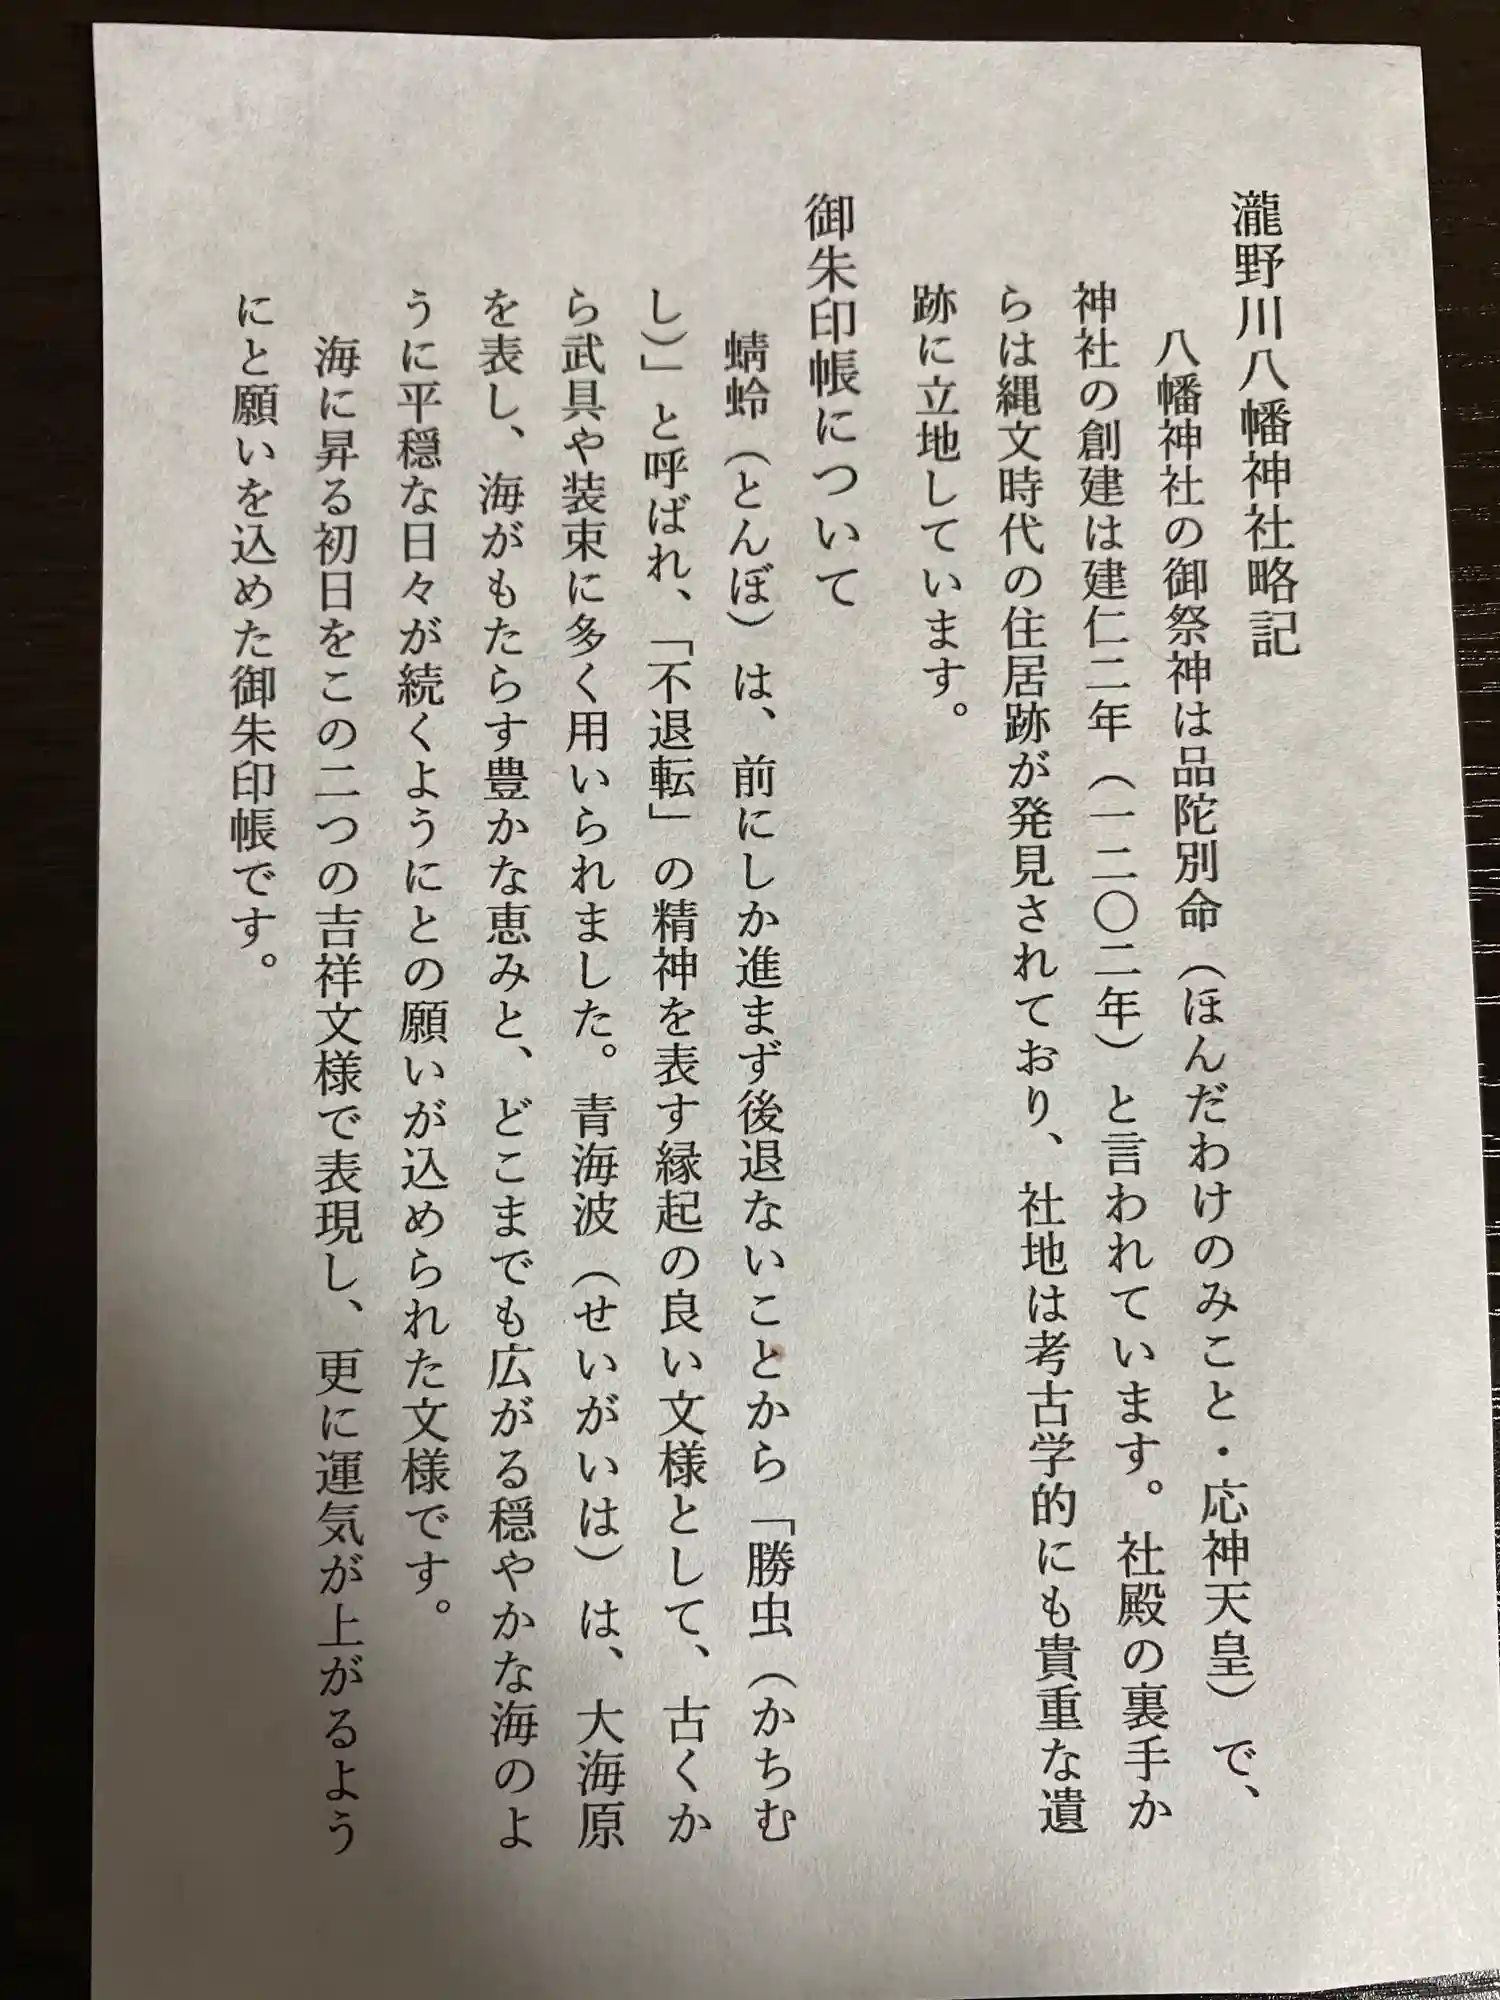 瀧野川八幡神社略記
八幡神社の御祭神は品陀別命（ほんだわけのみこと・応神天皇）で、
神社の創建は建仁二年（一二〇二年）と言われています。社殿の裏手か
らは縄文時代の住居跡が発見されており、社地は考古学的にも貴重な遺
跡に立地しています。
御朱印帳について
蜻蛉（とんぼ）は、前にしか進まず後退ないことから「勝虫（かちむ
し）」と呼ばれ、「不退転」の精神を表す縁起の良い文様として、古くか
ら武具や装束に多く用いられました。青海波（せいがいは）は、大海原
を表し、海がもたらす豊かな恵みと、どこまでも広がる穏やかな海のよ
うに平穏な日々が続くようにとの願いが込められた文様です。
海に昇る初日をこの二つの吉祥文様で表現し、更に運気が上がるよう
にと願いを込めた御朱印帳です。